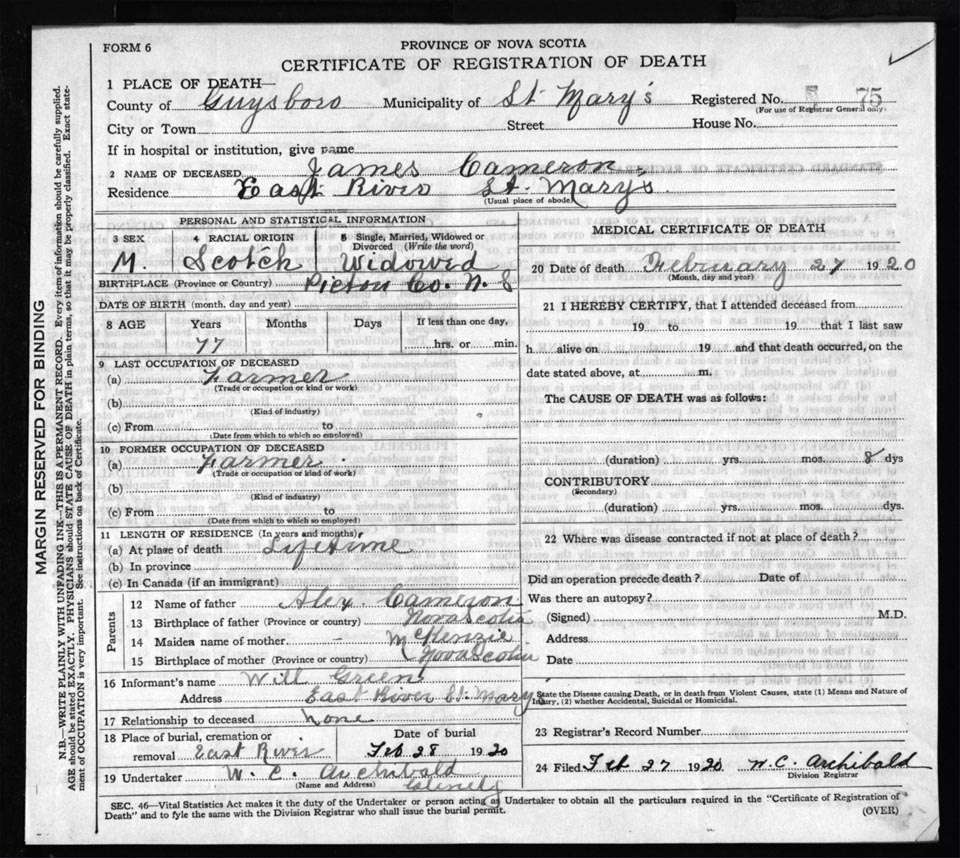 PROVINCE OF NOVA SCOTIA
FORM 6
CERTIFICATE OF REGISTRATION OF DEATH
1 PLACE OF DEATH
County of Guysboro Municipality of St Mary's Registered No. 75
(For use of Registrar General only)
City or Town Street House No.
If in hospital or institution, give name
2 NAME OF DECEASED James Cameron
Residence East River St. Mary's
(Usual place of abode)
PERSONAL AND STATISTICAL INFORMATION
3 SEX 4 RACIAL ORIGIN 5 Single, Married, Widowed or Divorced (Write the word)
M. Scotch Widowed
BIRTHPLACE (Province or Country) Pictou Co. N. S
DATE OF BIRTH (month, day and year)
8 AGE Years Months Days If less than one day,
77 hrs. or min.
9 LAST OCCUPATION OF DECEASED
(a) Farmer
(Trade or occupation or kind or work)
(b)
(Kind of industry)
(c) From to
(Date from which to which so employed)
10 FORMER OCCUPATION OF DECEASED
(a) Farmer
(Trade or occupation or kind of work)
(b)
(Kind of industry)
(c) From to
(Date from which to which so employed)
11 LENGTH OF RESIDENCE (In years and months)
(a) At place of death Lifetime
(b) In province
(c) In Canada (if an immigrant)
Parents
12 Name of father Alex Cameron
13 Birthplace of father (Province or country) Nova Scotia
14 Maiden name of mother McKenzie
15 Birthplace of mother (Province or country) Nova Scotia
16 Informant's name Will Green
Address East River St. Mary's
17 Relationship to deceased None
18 Place of burial, cremation or Date of burial
removal East River Feb 28 1920
19 Undertaker W. C. Archibald
(Name and Address)
MEDICAL CERTIFICATE OF DEATH
20 Date of death February 27 1920
(Month, day and year)
21 I HEREBY CERTIFY, that I attended deceased from
19 to 19 that I last saw
h alive on 19 and that death occurred, on the
date stated above, at m.
The CAUSE OF DEATH was as follows:
(duration) yrs. mos. 8 dys
CONTRIBUTORY
(Secondary)
(duration) yrs. mos. dys.
22 Where was disease contracted if not at place of death?
Did an operation precede death? Date of
Was there an autopsy?
(Signed) M.D.
Address
Date
State the Disease causing Death, or in death from Violent Causes, state (1) Means and Nature of
Injury, (2) whether Accidental, Suicidal or Homicidal.
23 Registrar's Record Number
24 Filed Feb 27 1920 W. C. Archibald
Division Registrar
SEC. 46—Vital Statistics Act makes it the duty of the Undertaker or person acting as Undertaker to obtain all the particulars required in the "Certificate of Registration of
Death" and to fyle the same with the Division Registrar who shall issue the burial permit.
(OVER)
MARGIN RESERVED FOR BINDING
N.B.—WRITE PLAINLY WITH UNFADING INK—THIS IS A PERMANENT RECORD. Every item of information should be carefully supplied.
AGE should be stated EXACTLY. PHYSICIANS should STATE CAUSE OF DEATH in plain terms, so that it may be properly classified. Exact state-
ment of OCCUPATION is very important. See instructions on back of Certificate.